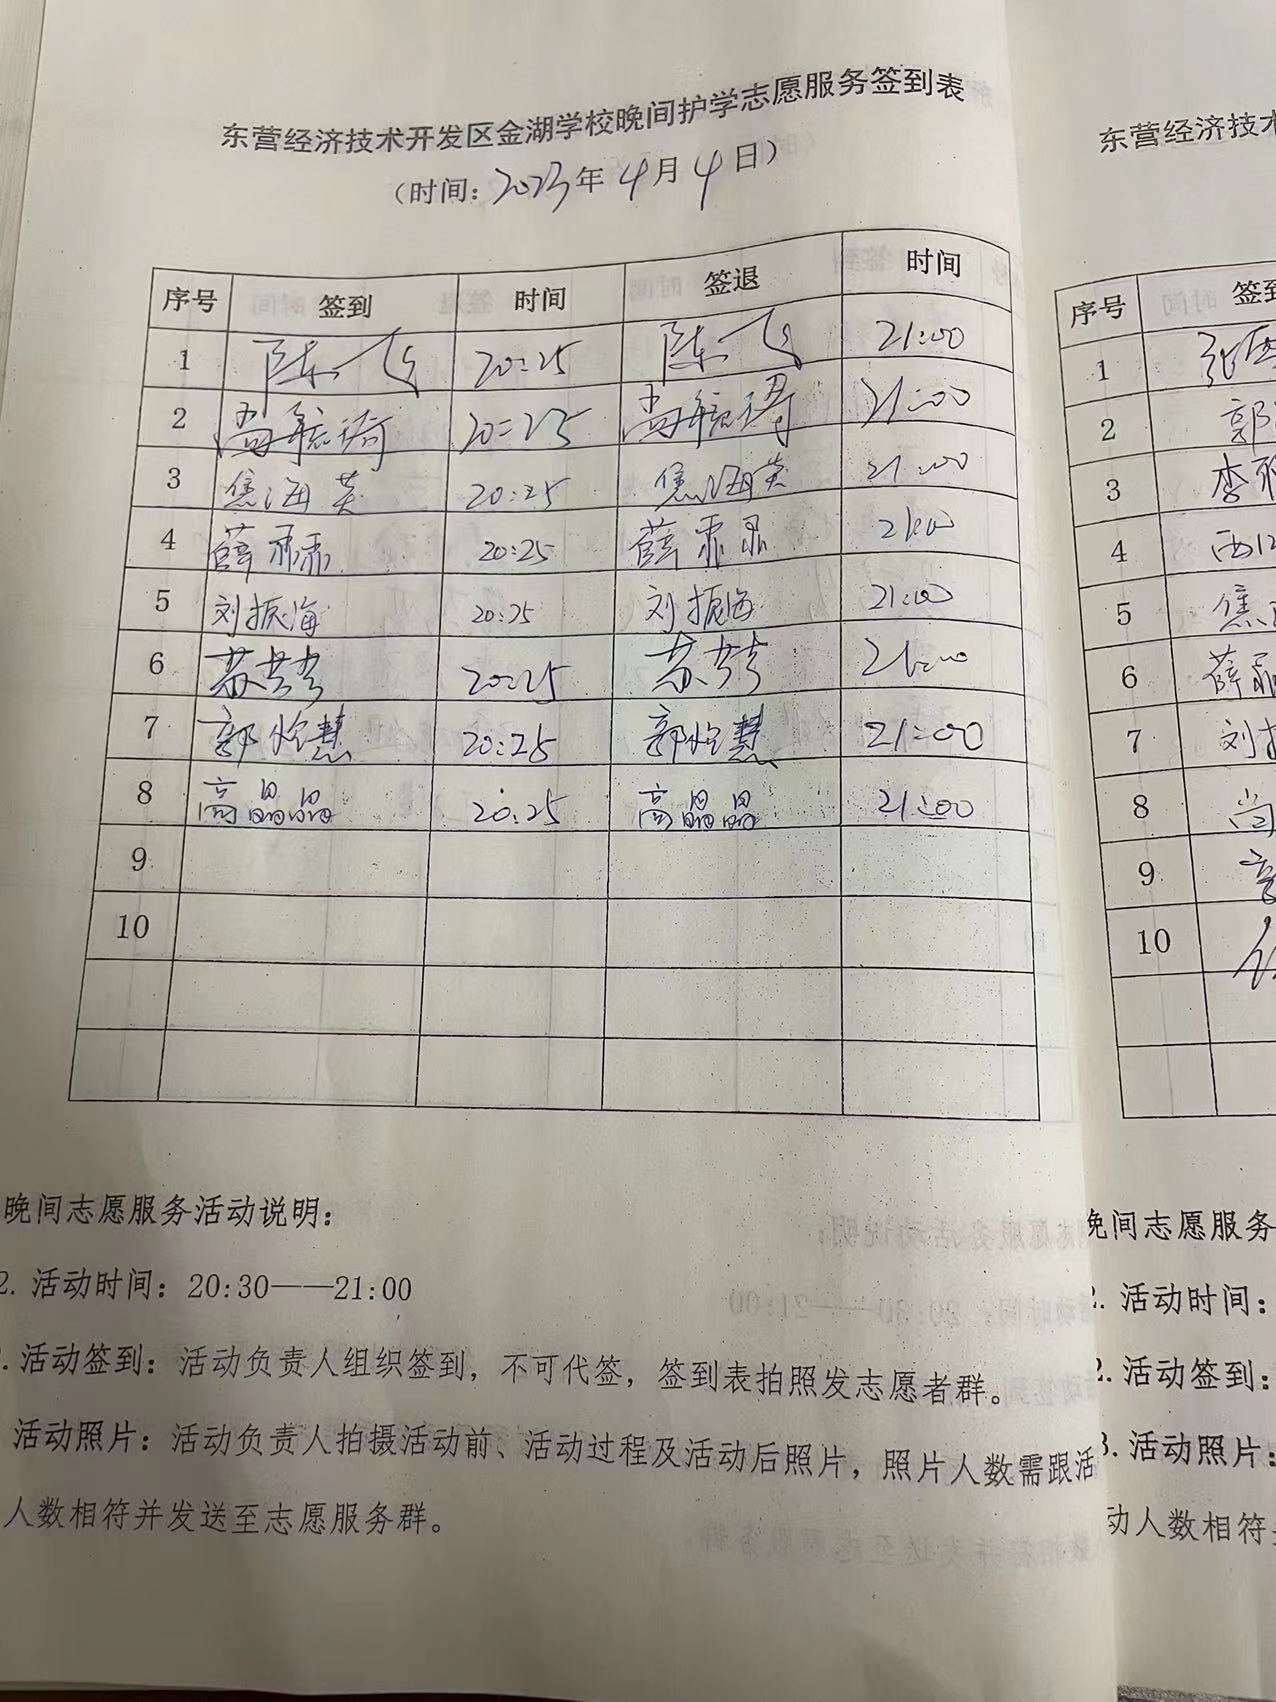 东营经济技术开发区金湖学校晚间护学志愿服务签到表
（时间：2023年4月4日）
序号 签到 时间 签退 时间
1 陈飞 20:25 陈飞 21:00
2 尚毓琦 20:25 尚毓琦 21:00
3 焦海英 20:25 焦海英 21:00
4 薛霏霏 20:25 薛霏霏 21:00
5 刘振海 20:25 刘振海 21:00
6 苏 20:25 苏 21:00
7 郭怜慧 20:25 郭怜慧 21:00
8 高晶晶 20:25 高晶晶 21:00
9
10
晚间志愿服务活动说明：
2. 活动时间：20:30——21:00
. 活动签到：活动负责人组织签到，不可代签，签到表拍照发志愿者群。
活动照片：活动负责人拍摄活动前、活动过程及活动后照片，照片人数需跟活
人数相符并发送至志愿服务群。
东营经济技术
序号 签到
1 张
2 郭
3 李
4
5 焦
6 薛霏
7 刘振
8 尚
9 高
10
晚间志愿服务
. 活动时间：
2. 活动签到：
3. 活动照片：
动人数相符